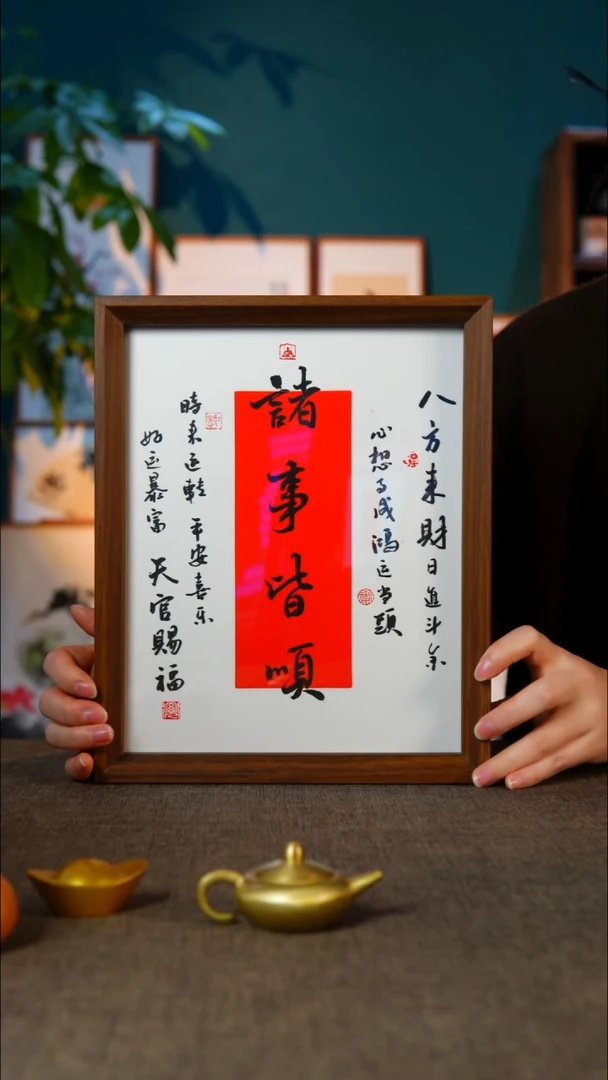 八方来財日進斗金
心想事成鴻运当頭
諸事皆順
時来运轉平安喜乐
好运暴富天官賜福